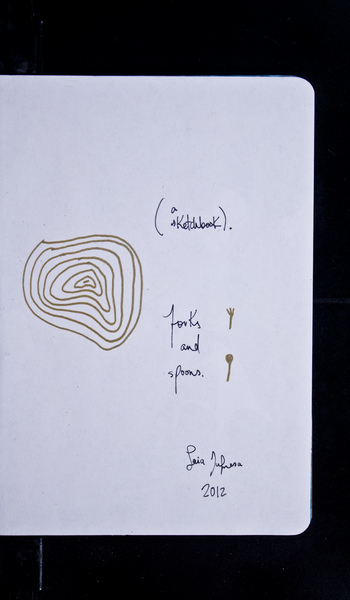 (a
sketchbook).
forks
and
spoons.
Laia Jufresa
2012